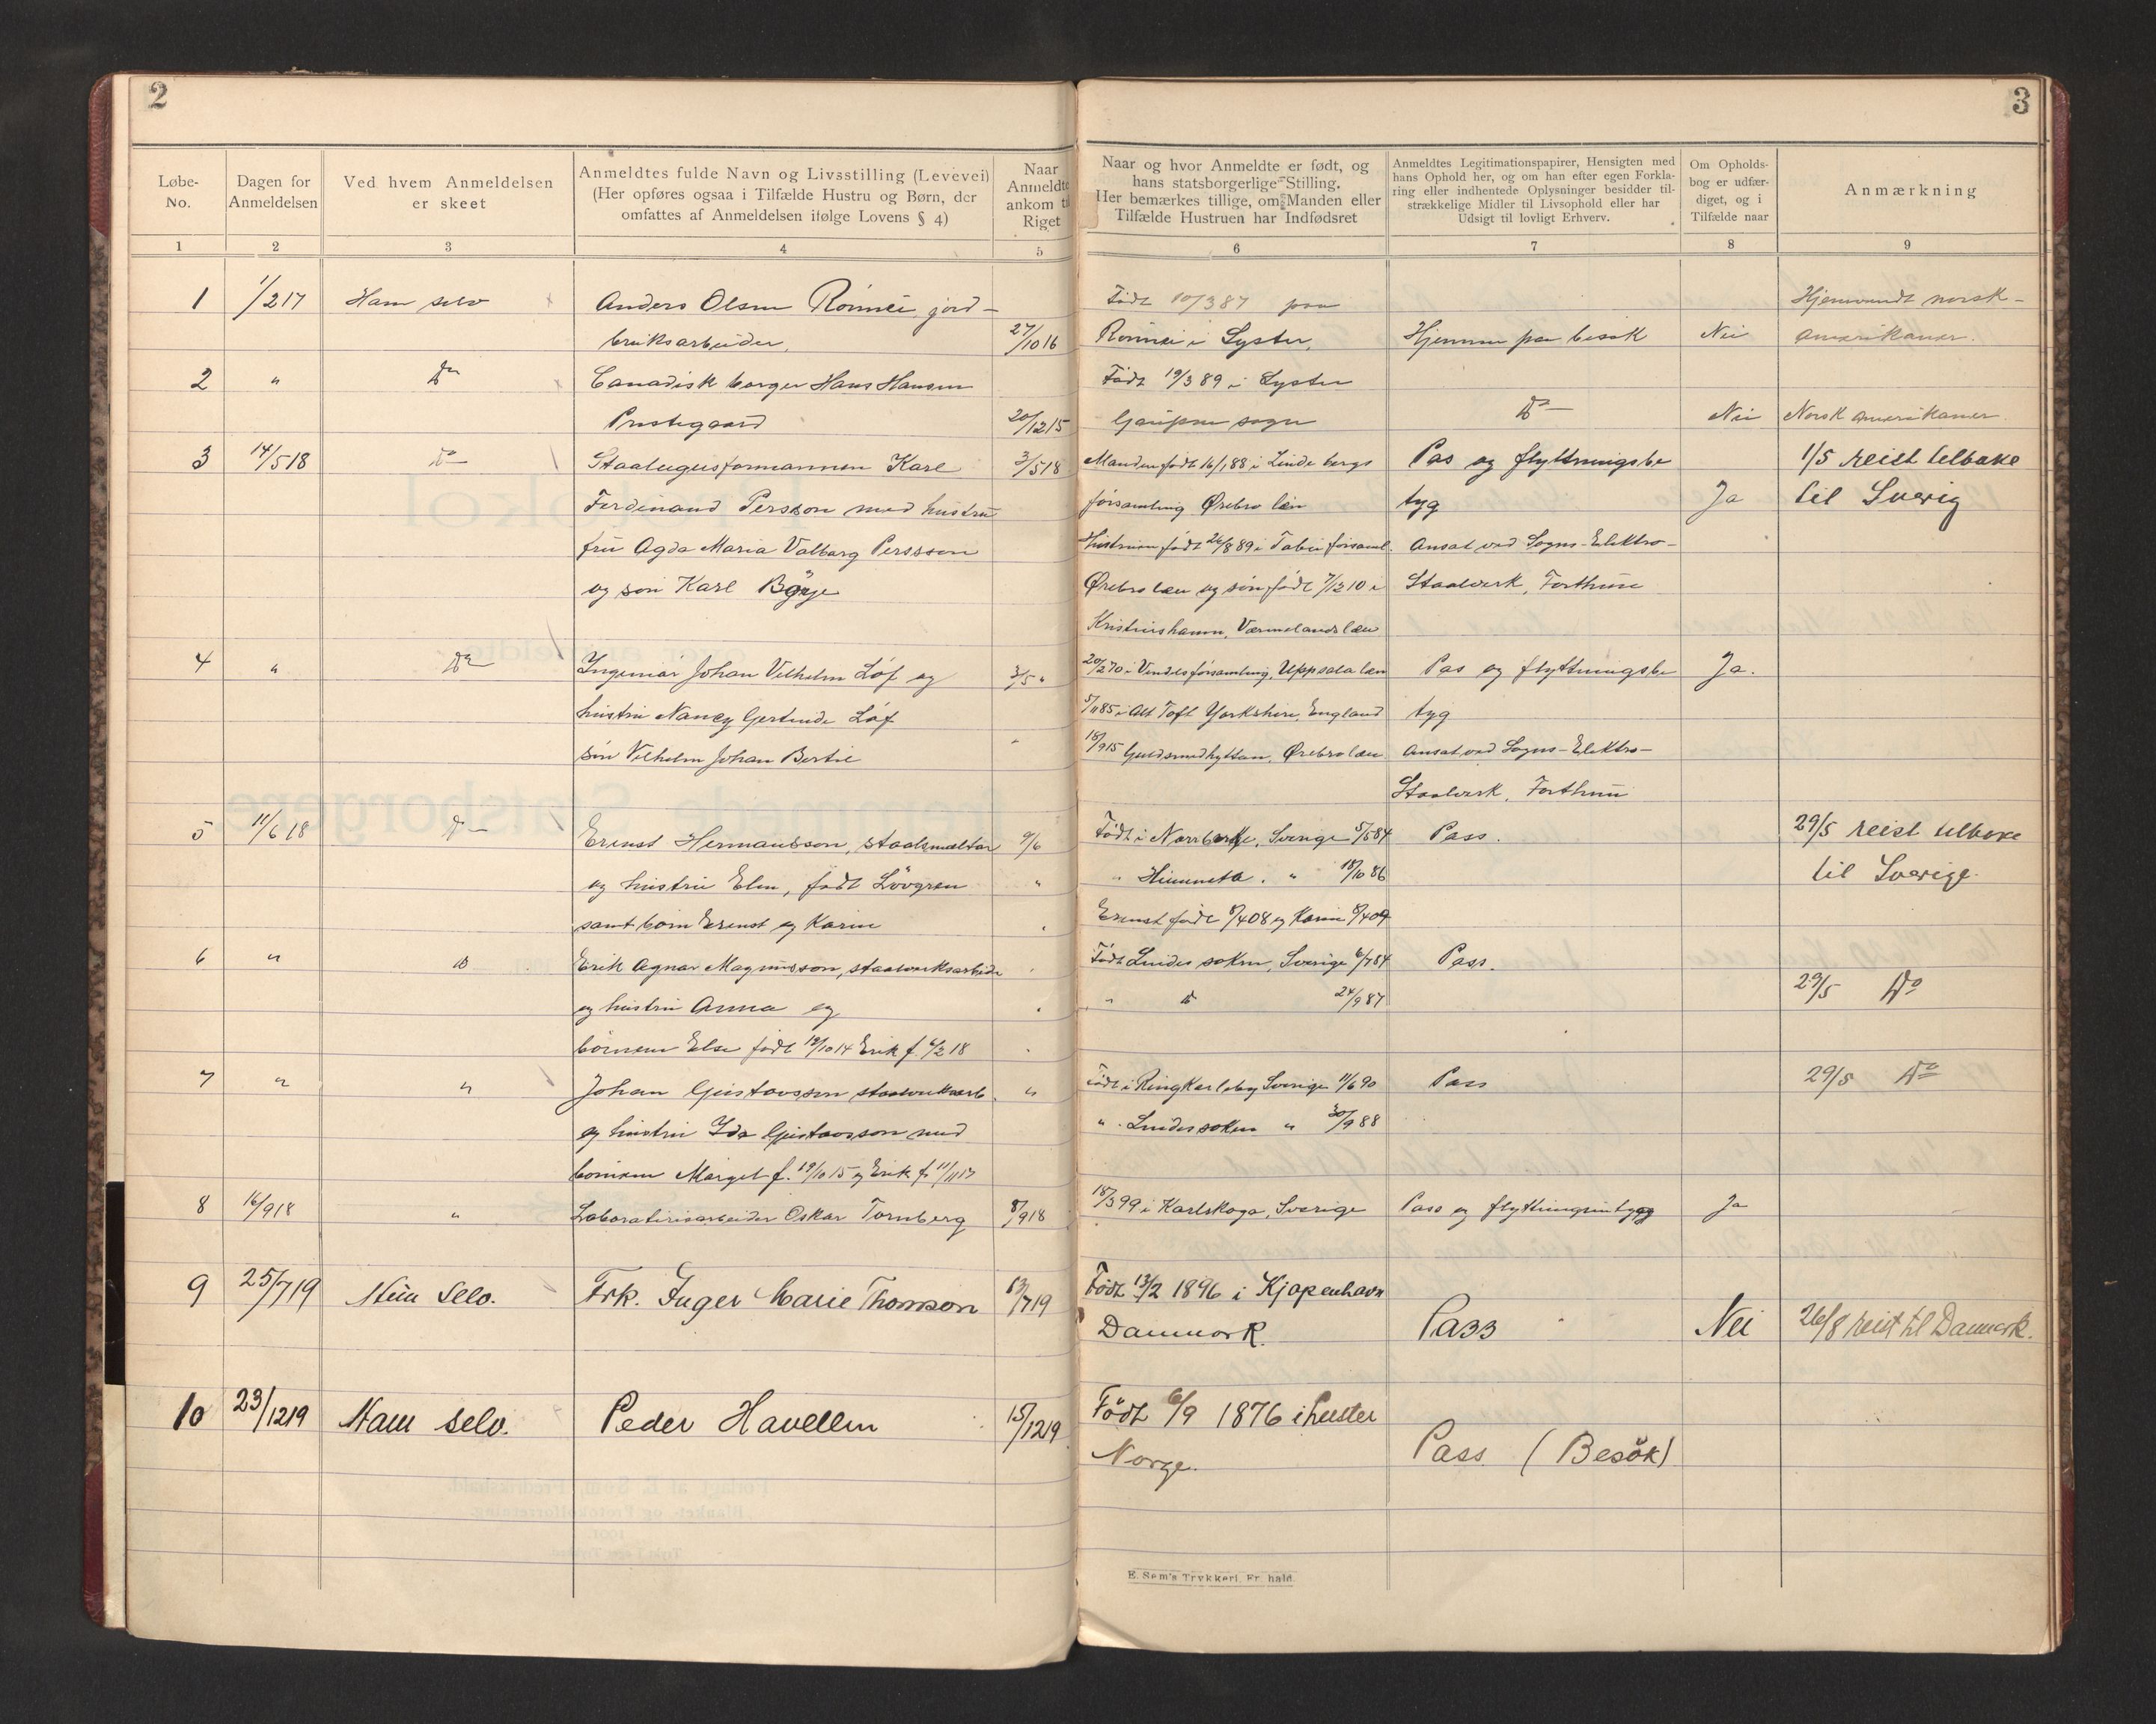 2
3
Løbe-No.
Dagen for Anmeldelsen
Ved hvem Anmeldelsen er skeet
Anmeldtes fulde Navn og Livsstilling (Levevei)
(Her opføres ogsaa i Tilfælde Hustru og Børn, der
omfattes af Anmeldelsen ifølge Lovens § 4)
Naar Anmeldte ankom til Riget
Naar og hvor Anmeldte er født, og
hans statsborgerlige Stilling.
Her bemærkes tillige, om Manden eller
Tilfælde Hustruen har Indfødsret
Anmeldtes Legitimationspapirer, Hensigten med
hans Ophold her, og om han efter egen Forkla-
ring eller indhentede Oplysninger besidder til-
strækkelige Midler til Livsophold eller har
Udsigt til lovligt Erhverv.
Om Opholds-
bog er udfær-
diget, og i
Tilfælde naar
Anmærkning
1 2 3 4 5 6 7 8 9
1 1/2 17 Ham selv Anders Olsen Rönnei, jord- Födt 10/3 87 paa Hjemvendt norsk-
bruksarbeider. 27/10 16 Rönnei i Lyster, Hjemme paa besök Nei amerikaner.
2 " Do Canadisk borger Hans Hansen Födt 19/3 89 i Lyster
Prestegaard 20/12 15 Gaupne sogn Do Nei Norsk amerikaner
3 14/5 18 Do Staalugnsformannen Karl 3/5 18 Manden födt 16/1 88 i Linde bergs Pas og flyttningsbe 1/5 reist telbake
Ferdinand Persson med hustru församling Örebro län tyg Ja til Sverig
fru Agda Maria Valborg Persson Hustruen födt 26/8 89 i församl. Ansat ved Sogns-Elektro-
og sön Karl Börje Örebro læn og sön födt 7/12 10 i Staalverk, Forthun
Kristinehamn, Værmelands læn
4 " Do Ingeniör Johan Vilhelm Löf og 3/5 " 20/2 70 i Vendels församling, Uppsala læn Pas og flyttningsbe Ja.
hustru Nancy Gertrude Löf 5/11 85 i Alt Toft Yorkshire, England tyg
sön Vilhelm Johan Bertil " 18/9 15 Guldsmedhyttan, Örebro læn Ansat ved Sogns-Elektro-
Staalverk, Forthun
5 11/6 18 Do Erenst Hermansson, staalsmältar 9/6 Födt i Norrbärke, Sverige 5/5 84 Pass. 29/5 reist telbake
og hustru Elin, født Lövgren " " Himmeta. " 18/10 86 til Sverige.
samt børn Erenst og Karin " Erenst født 8/4 08 og Karin 8/4 09
6 " Do Erik Agnar Magnusson, staalverksarbeide " Födt Lindes sokn, Sverige 6/7 84 Pass. 29/5 Do
og hustru Anna og " " Do 24/9 87
börnene Else født 19/10 14 Erik f. 6/2 18 "
7 " " Johan Gustavsson staalverksarb. " Födt i Ringkarleby Sverige 11/6 90 Pass 29/5 Do
og hustru Ida Gustavsson med " Lindes sokn " 30/9 88
börnene Margit f. 19/10 15 og Erik f. 11/11 17
8 16/9 18 " Laboratoriearbeider Oskar Tornberg 8/9 18 18/3 99 i Karlskoga, Sverige Pass og Ja
9 25/7 19 Hun Selv. Frk. Inger Marie Thomson 13/7 19 Födt 13/2 1896 i Kjøpenhavn
Danmark. Pass Nei 26/8 reist til Danmark.
10 23/12 19 Ham selv. Peder Havellen 15/12 19 Födt 6/9 1876 i Luster
Norge. Pass (Besök)
E. Sem's Trykkeri, Fr. hald.